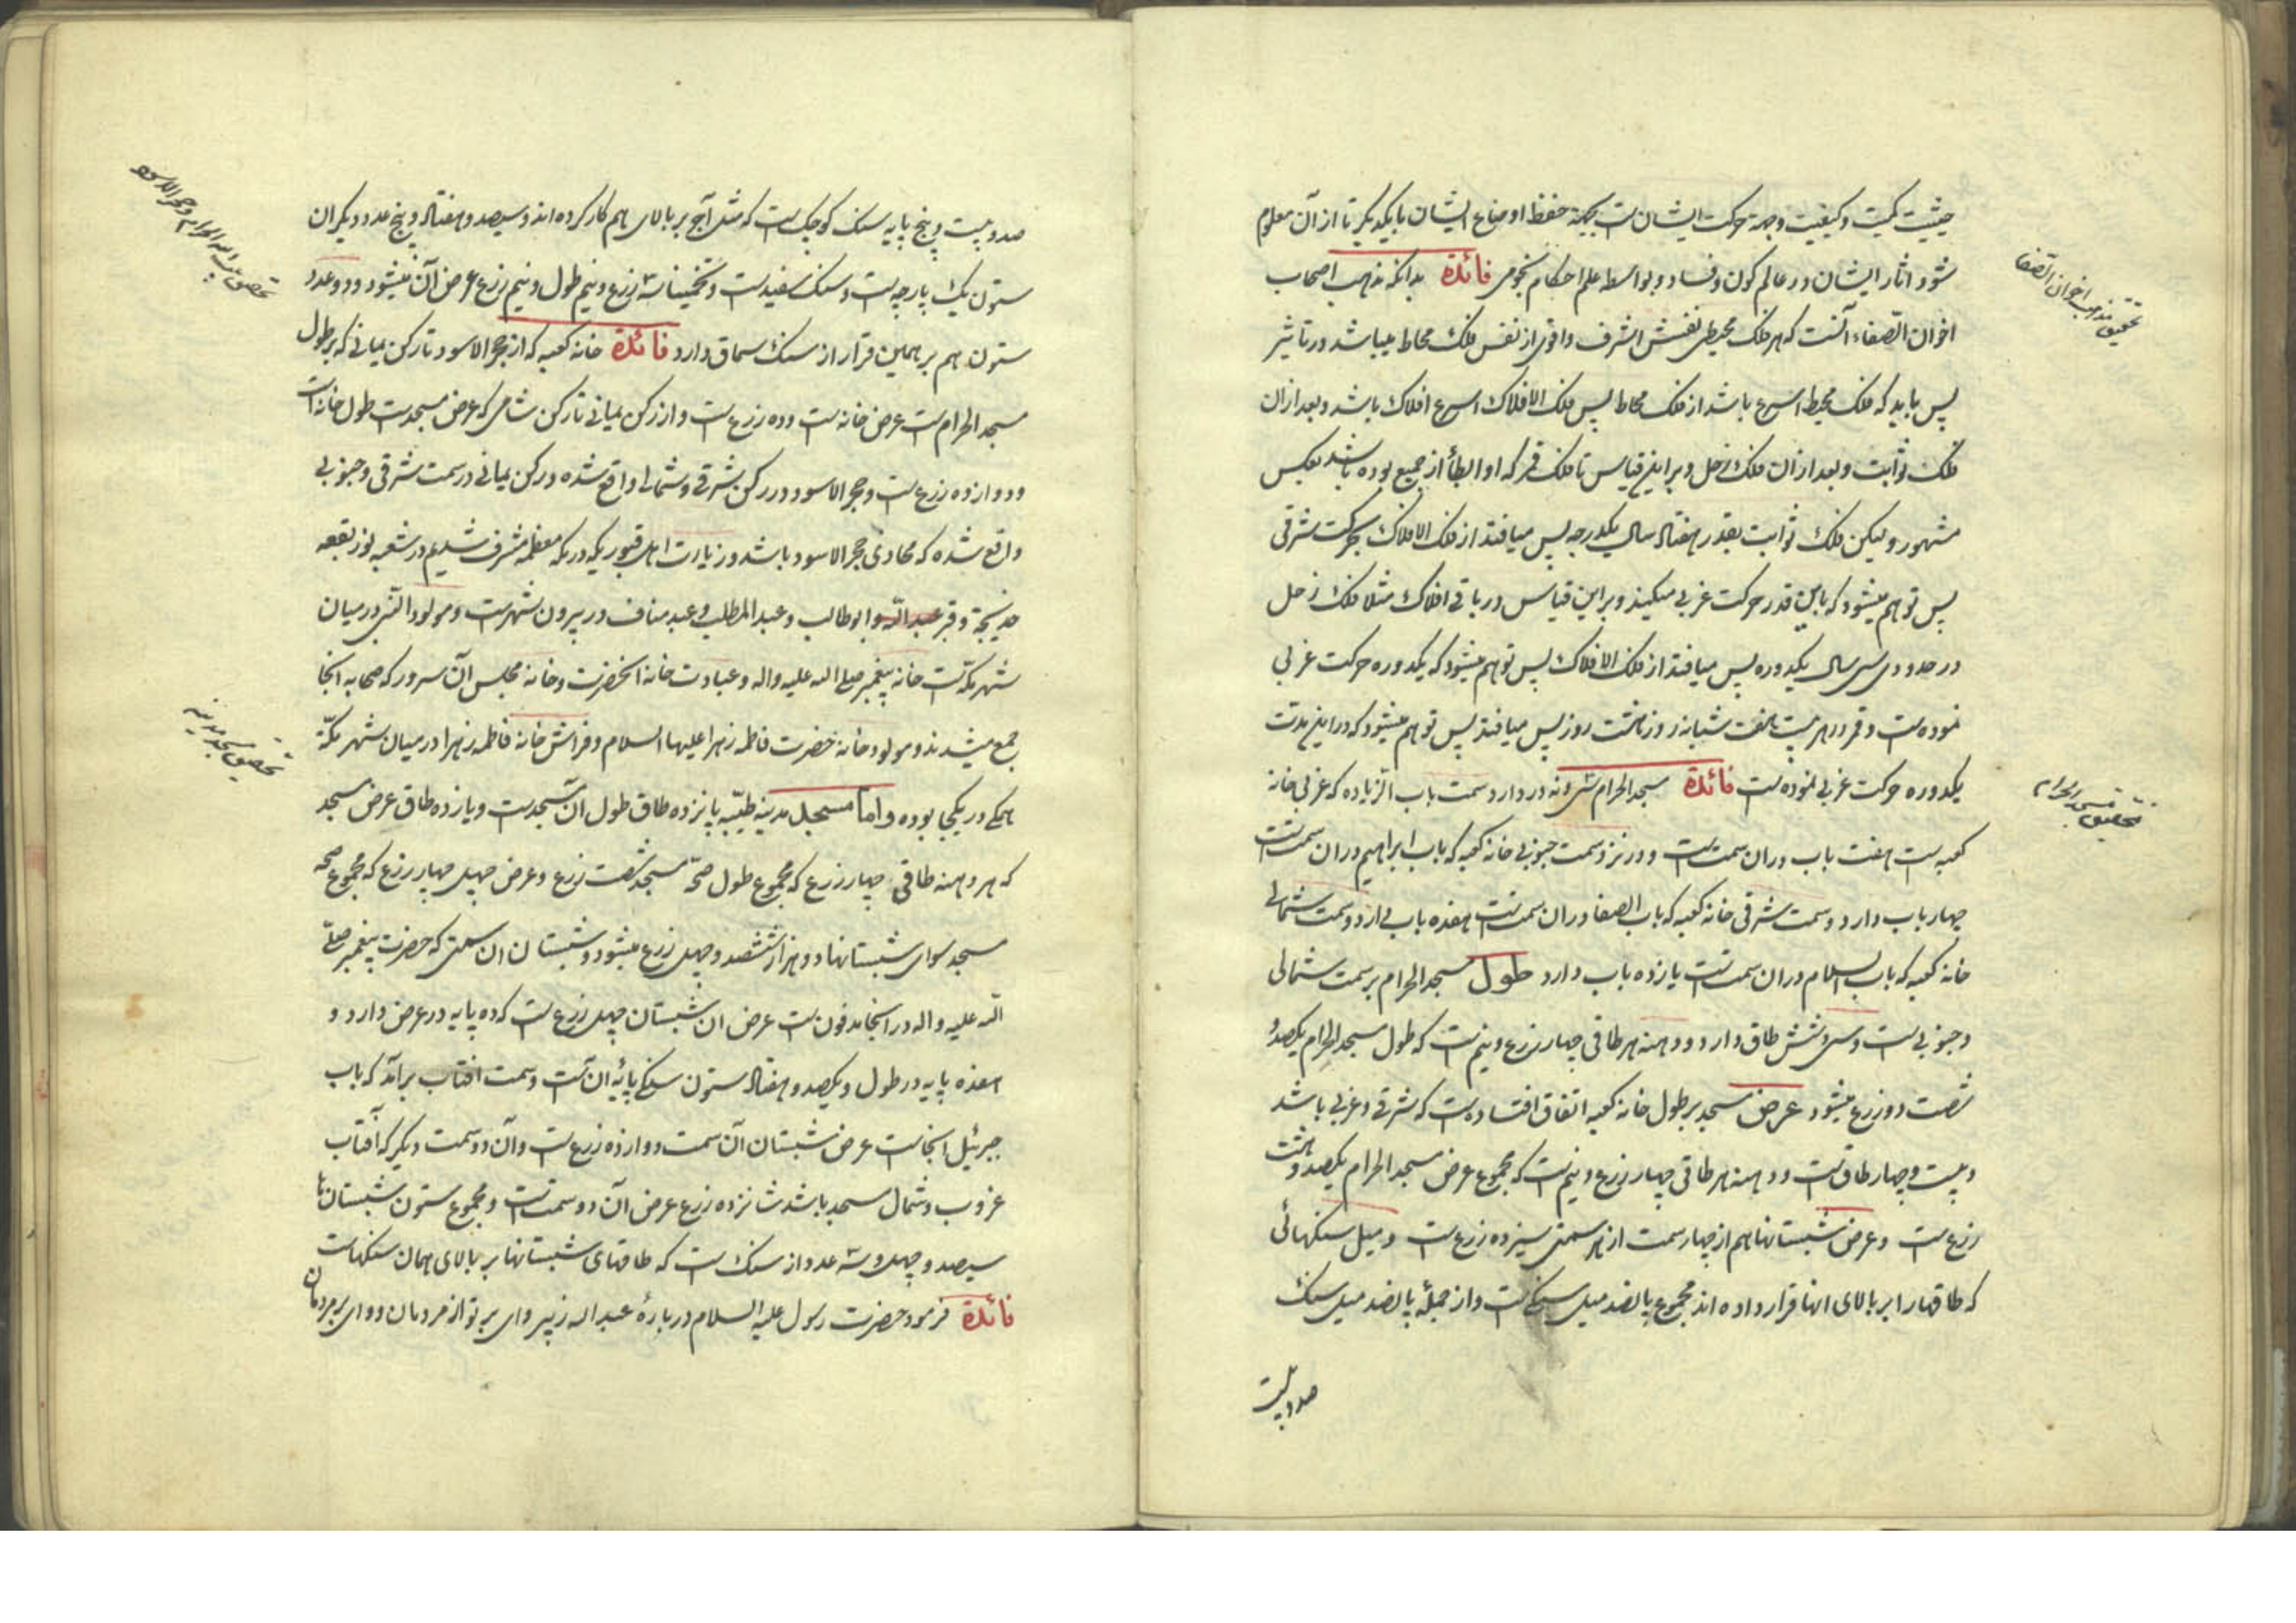 حیثیت کمیت و کیفیت وجهة حرکت ایشان است بجهة حفظ اوضاع ایشان با یکدیگر تا از آن معلوم
شود اثار ایشان در عالم کون و فساد و بواسطه علم احکام نجومی فائدة بدانکه مذهب اصحاب
اخوان الصفاء آنست که هر فلک محیطی نفسش اشرف و اقوی از نفس فلک محاط میباشد در تأثیر
پس باید که فلک محیط اسرع باشد از فلک محاط پس فلک الافلاک اسرع افلاک باشد و بعد از ان
فلک ثوابت و بعد از ان فلک زحل و براین قیاس تا فلک قمر که او ابطأ از جمیع بوده باشد بعکس
مشهور و لیکن فلک ثوابت بقدر هفتاد سال یکدرجه پس میافتد از فلک الافلاک بحرکت شرقی
پس توهم میشود که باین قدر حرکت غربی میکنند و براین قیاس در باقی افلاک مثلا فلک زحل
در حدود سی سال یکدوره پس میافتد از فلک الافلاک پس توهم میشود که یکدوره حرکت غربی
نموده است و قمر در هر بیست هفت شبانه روز هشت روز پس میافتد پس توهم میشود که در این مدت
یکدوره حرکت غربی نموده است فائدة مسجد الحرام سی و نه در دارد سمت باب الزیاده که غربی خانه
کعبه است هفت باب دران سمت است و در نزد سمت جنوبی خانه کعبه که باب ابراهیم دران سمت است
چهار باب دارد و سمت شرقی خانه کعبه که باب الصفا دران سمت است هفده باب دارد و سمت شمالی
خانه کعبه که باب السلام دران سمت است یازده باب دارد طول مسجد الحرام بر سمت شمالی
و جنوبی است و سی و شش طاق دارد و دهنه هر طاقی چهار زرع و نیم است که طول مسجد الحرام یکصد و
شصت دو زرع میشود عرض مسجد بر طول خانه کعبه اتفاق افتاده است که شرقی و غربی باشد
و بیست و چهار طاق است و دهنه هر طاقی چهار زرع و نیم است که مجموع عرض مسجد الحرام یکصد و هشت
زرع است و عرض شبستانها هم از چهار سمت از هر سمتی سیزده زرع است و میل سنگهائی
که طاقها را بر بالای انها قرار داده اند مجموع پانصد میل سنگی است و از جملهٔ پانصد میل سنگ
صد و بیست
تحقیق مذهب اخوان الصفا
تحقیق مسجد الحرام
صد و بیست و پنج پایه سنک کوچک است که مثل آجر بر بالای هم کار کرده اند و سیصد و هفتاد و پنج عدد دیگر ان
ستون یک پارچه است و سنک سفید است و تخمینا سه زرع و نیم طول و نیم زرع عرض آن میشود و دو عدد
ستون هم بر همین قرار از سنک سماق دارد فائدة خانه کعبه که از حجر الاسود تا رکن یمانی که بر طول
مسجد الحرام است عرض خانه است و ده زرع است و از رکن یمانی تا رکن شامی که عرض مسجد است طول خانه است
و دوازده زرع است و حجر الاسود در رکن شرقی و شمالی واقع شده و رکن یمانی در سمت شرقی و جنوبی
واقع شده که محاذی حجر الاسود باشد و زیارت اهل قبوریکه در مکه معظمه مشرف شدیم در شعبه نور بقعه
خدیجة و قبر عبد الله و ابوطالب و عبد المطلب و عبد مناف در بیرون شهر است و مولود النبی در میان
شهر مکه است خانه پیغمبر صلی الله علیه واله و عبادت خانه انحضرت و خانه مجلس آن سرور که صحابه انجا
جمع میشدند و مولود خانه حضرت فاطمه زهرا علیها السلام و فراش خانه فاطمه زهرا در میان شهر مکه
همکی در یکجا بوده و اما مسجد مدینه طیبه پانزده طاق طول ان مسجد است و یازده طاق عرض مسجد
که هر دهنه طاقی چهار زرع که مجموع طول صحن مسجد شصت زرع و عرض چهل چهار زرع که مجموع صحن
مسجد سوای شبستانها دو هزار ششصد و چهل زرع میشود و شبستان ان سمتی که حضرت پیغمبر صلی
الله علیه واله در انجا مدفون است عرض ان شبستان چهل زرع است که ده پایه در عرض دارد و
هفده پایه در طول و یکصد و هفتاد ستون سنکی پایهٔ ان است و سمت افتاب برآمد که باب
جبرئیل انجاست عرض شبستان آن سمت دوازده زرع است و آن دو سمت دیگر که آفتاب
غروب و شمال مسجد باشد شانزده زرع عرض آن دو سمت است و مجموع ستون شبستان ها
سیصد و چهل و سه عدد از سنک است که طاقهای شبستانها بر بالای همان سنکهاست
فائدة فرمود حضرت رسول علیه السلام دربارهٔ عبد الله زبیر وای بر تو از مردمان و وای بر مردمان
تحقیق بیت الله الحرام و حجر الاسود
تحقیق مسجد مدینه